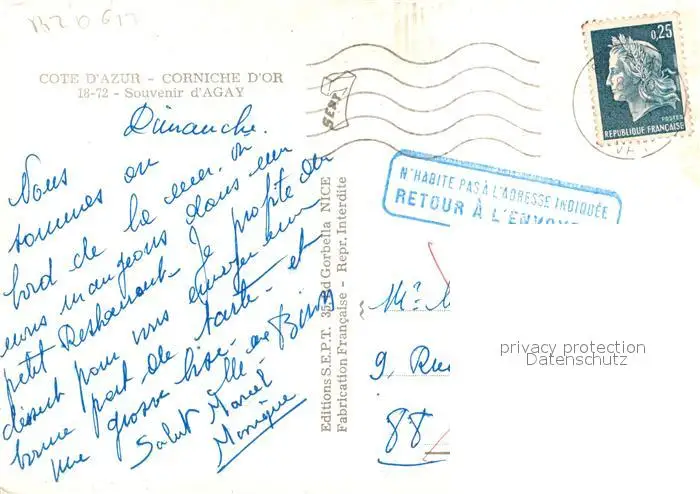 BZ0617
COTE D'AZUR - CORNICHE D'OR
18-72 - Souvenir d'AGAY
Dimanche.
Nous
sommes au
bord de la mer. On
nous mangeons dans un
petit Restaurant. Je profite du
dessert pour vous envoyer une
bonne part de tarte - et
une grosse bise
Salut Marcel
Monique
Editions S.E.P.T. Gorbella NICE
Fabrication Française - Repr. Interdite
SEPT
0,25
POSTES
REPUBLIQUE FRANÇAISE
VAR
N'HABITE PAS À L'ADRESSE INDIQUÉE
RETOUR À L'ENVOYE
9, Rue
88
privacy protection
Datenschutz